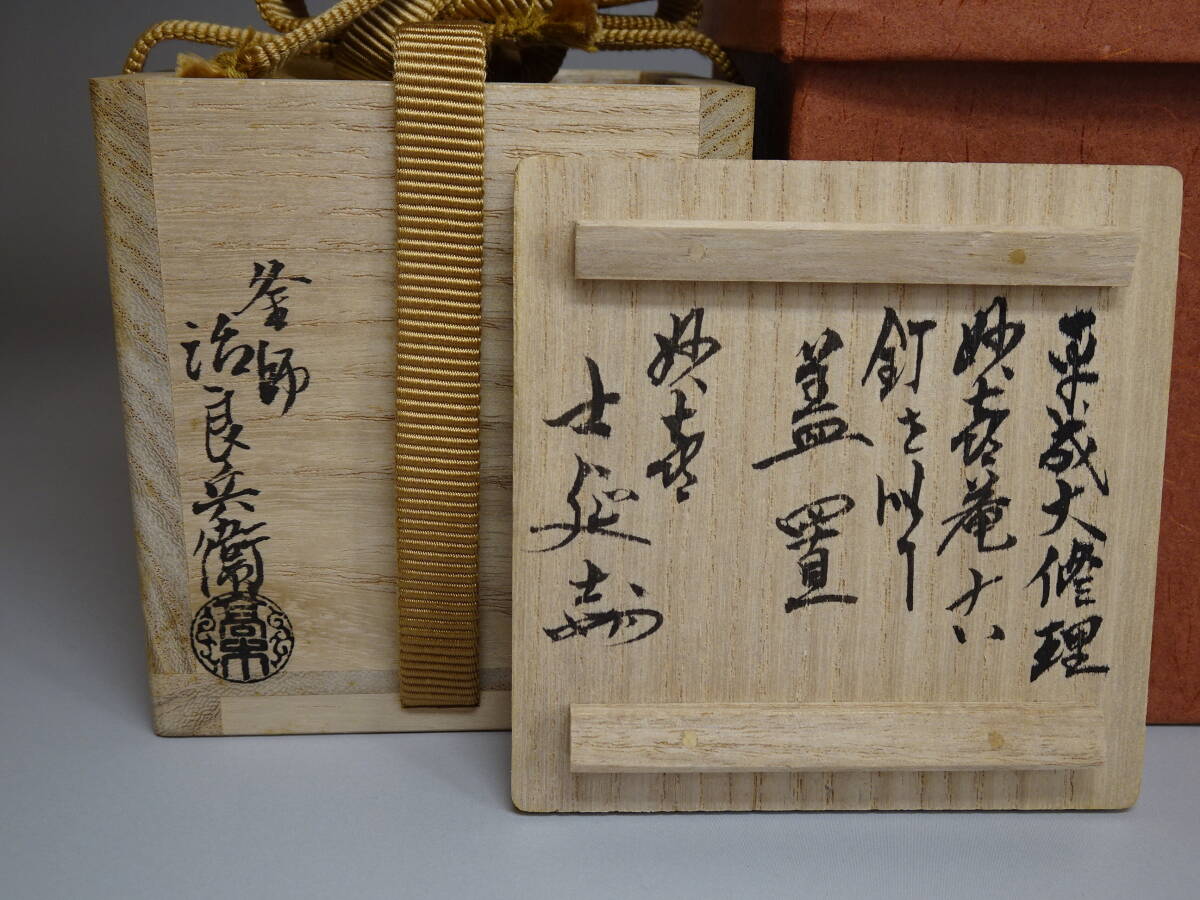 平成大修理
妙喜庵
釘を以て
蓋置
妙喜
士延
釜師
治良兵衛